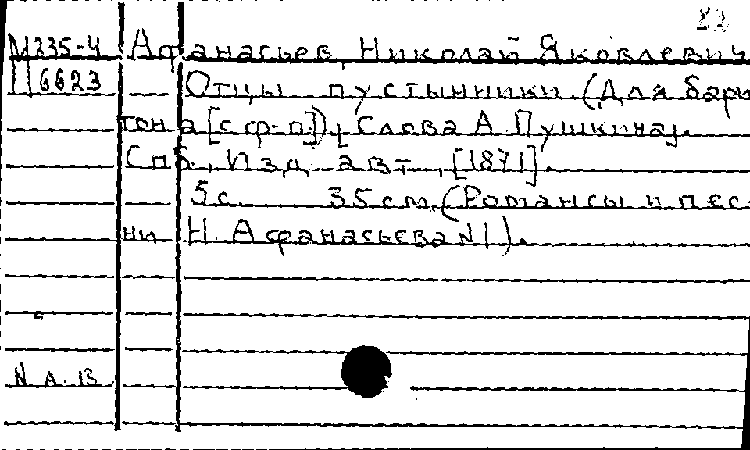 23
М235-4 Афанасьев, Николай Яковлевич
П6623 Отцы пустынники. (Для бари-
тона [с ф-п]). [Слова А. Пушкина].
Спб., Изд. авт., [1871].
5 с. 35 см. (Романсы и пес-
ни Н. Афанасьева N 1).
N А. 13